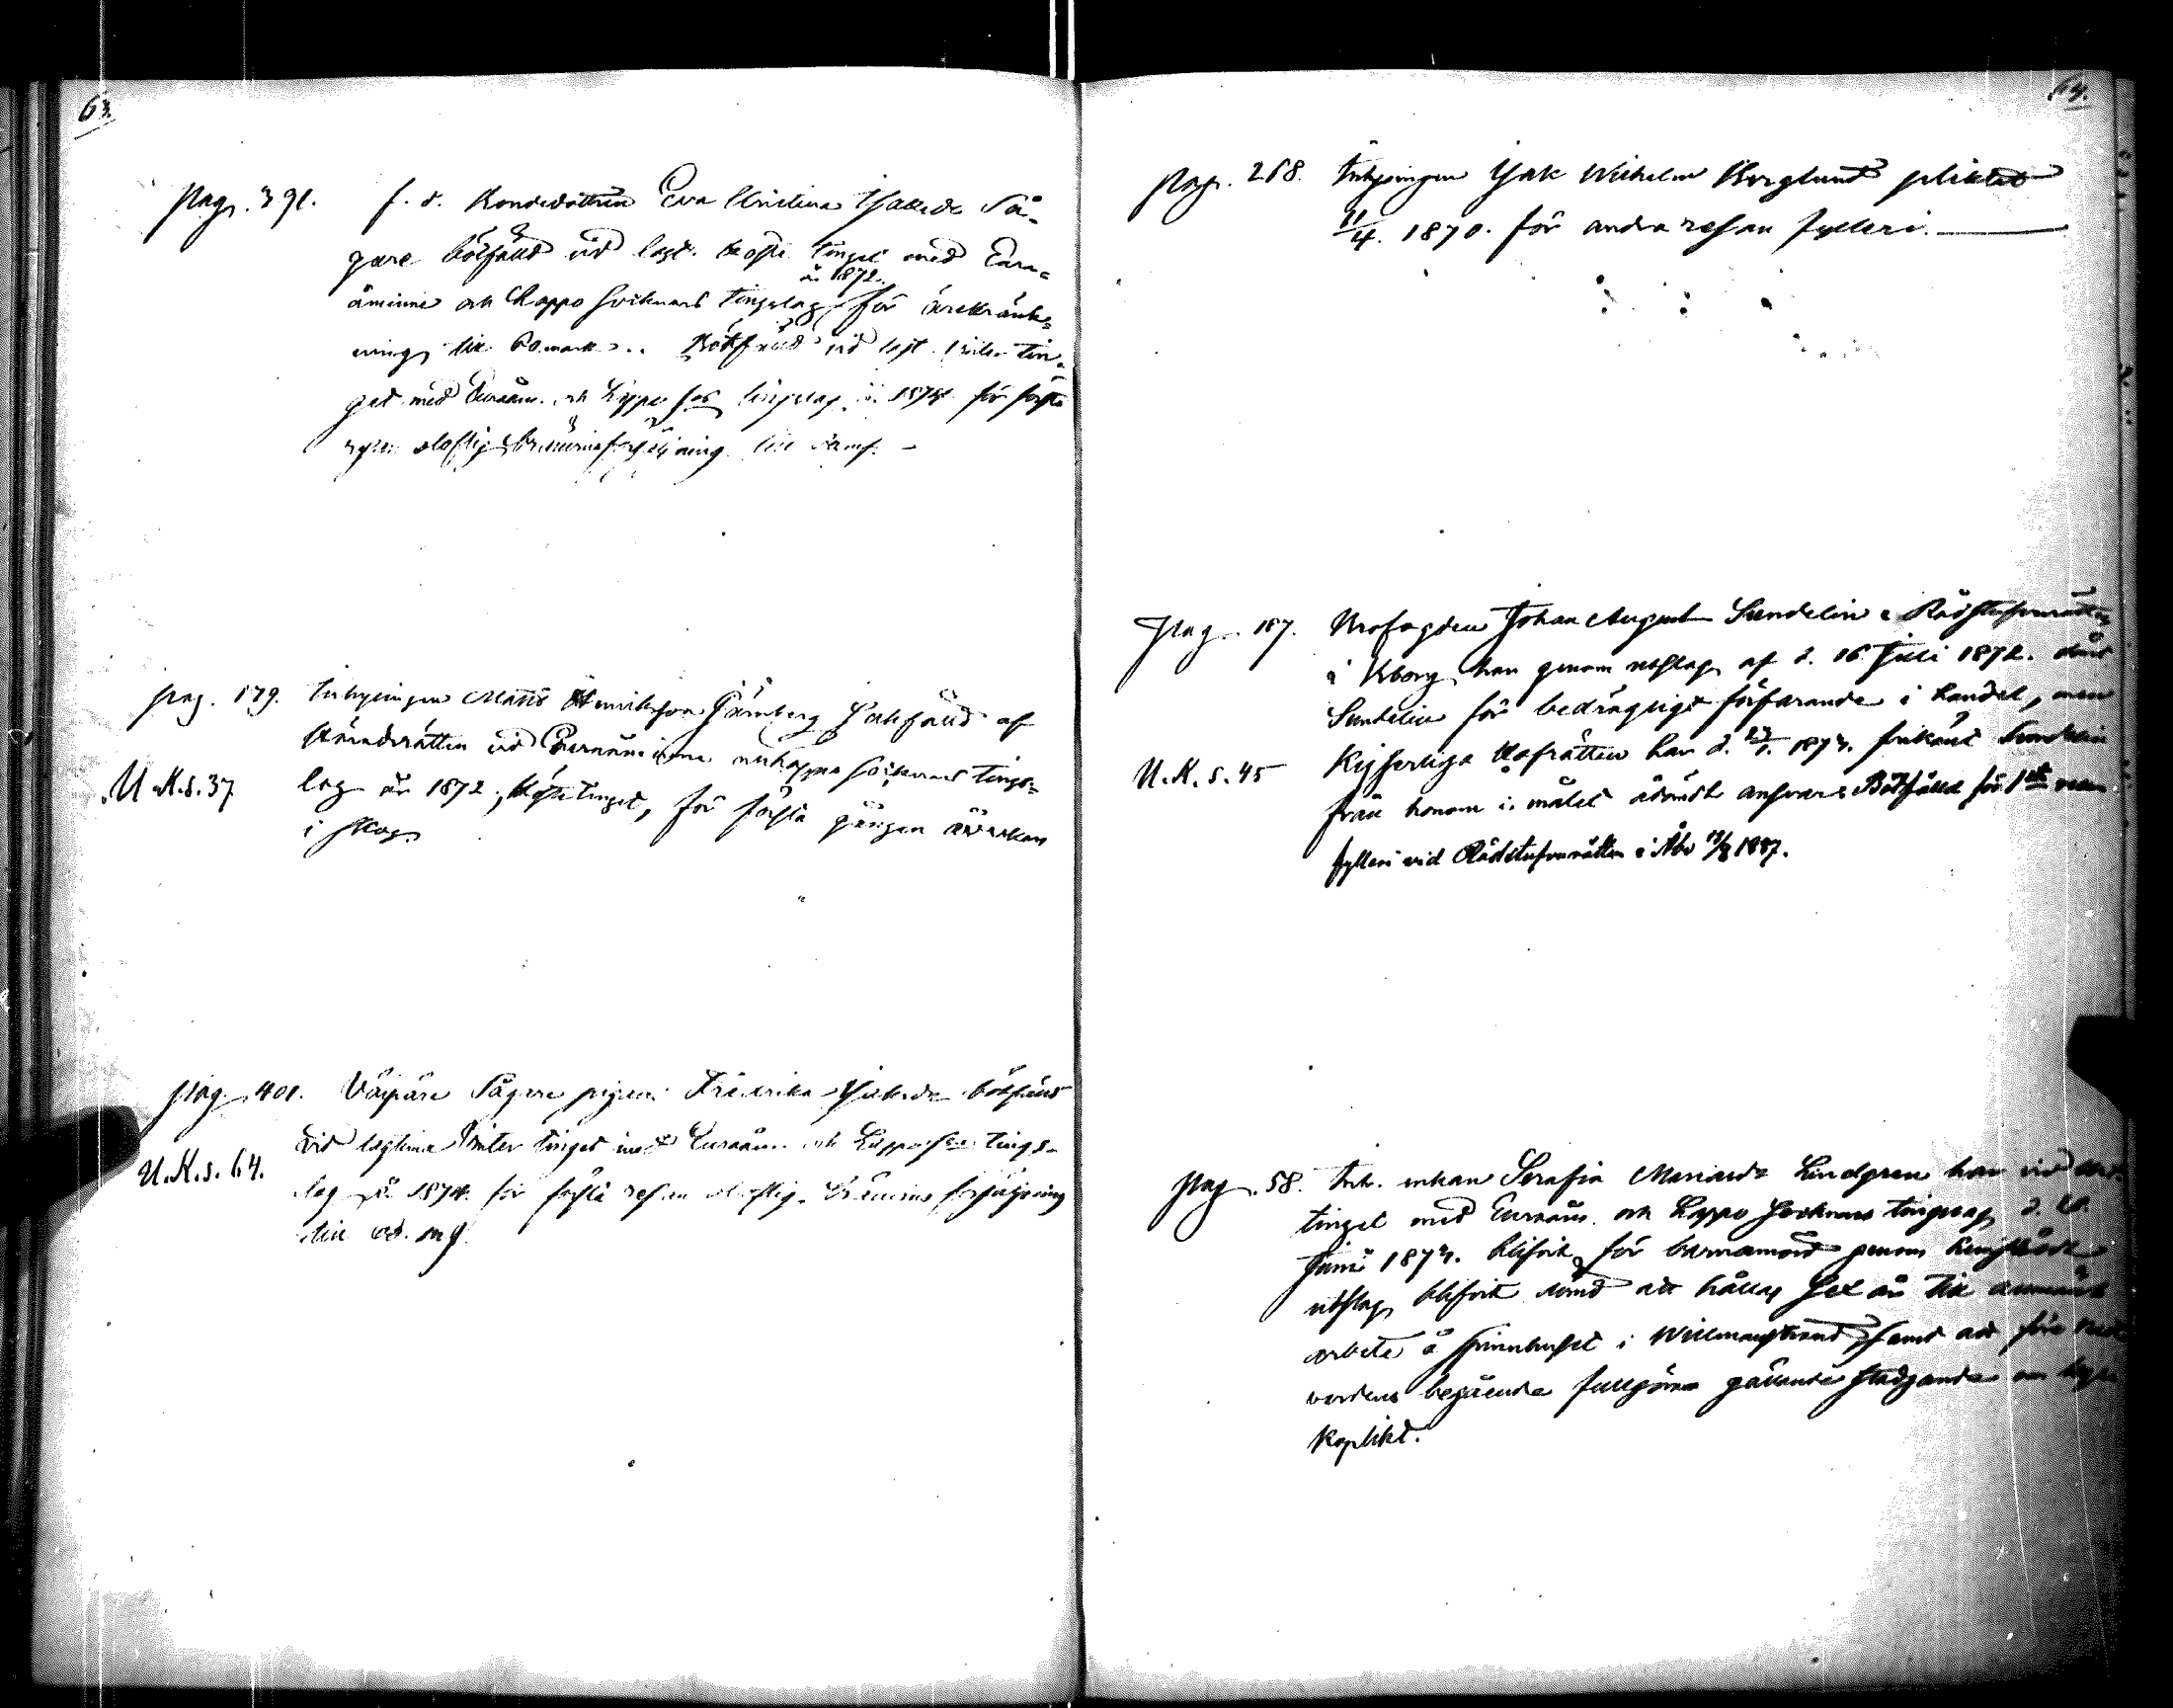 63.
pag. 391. f. d. Bondedottren Eva Christina Isaksdr Så-
gare bötfäld vid lagt. höste tinget med Eura-
år 1872.
åminne och Lappo Socknars Tingslag för ärekränk-
ning till 60 mark. Bötfäld vid lagt. vinter tin-
get med Euraåm. och Lappo Sos tingslag år 1874 för första
resan oloflig bränvinsförsäljning till
pag. 179. Inhysingen Matts Henriksson Järnberg Sakfäld af
Häradsrätten vid Euraåminne och Lappo Socknars Tings-
U.K.s.37 lag år 1872, höstetinget, för första gången åverkan
i skog
pag. 401. Sågare pigan Fredrika Isaksdr bötfäld
vid lagtima Vinter tinget med Euraåm. och Lappo Sos tings-
U.K.s.64. lag år 1874 för första resan oloflig bränvins försäljning
till
64.
pag. 268. Inhysingen Isak Wilhelm Berglund pliktat
11/4. 1870. för andra resan fylleri.
pag. 187. Krofogden Johan August Sundelin. Rådstufvurätten
i Wborg har genom utslag af d. 16 Juli 1872. dömt
Sundelin för bedrägligt förfarande i handel, men
U.K.s.45 Kejserliga Hofrätten har d. 1873. frikänt Sundelin
från honom i målet ådömdt ansvar. Bötfälld för 1sta resan
fylleri vid Rådstufvurätten i Åbo 1887.
pag. 58. Inh. enkan Serafia Mariasdr Lindgren har vid
tinget med Euraåm. och Lappo Socknars tingslag d.
Juni 1873. blifvit för barnamord genom
utslag blifvit dömd att hållas Sex år till allmänt
arbete å spinnhuset i Willmanstrand, samt att före
vardens begående fullgöra gällande stadganden om kyr-
koplikt.